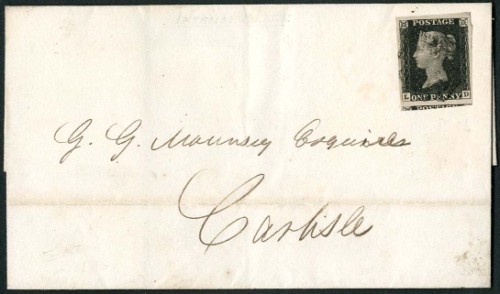 POSTAGE
L D
ONE PENNY
POSTAGE
G. G. Mounsey Esquires
Carlisle